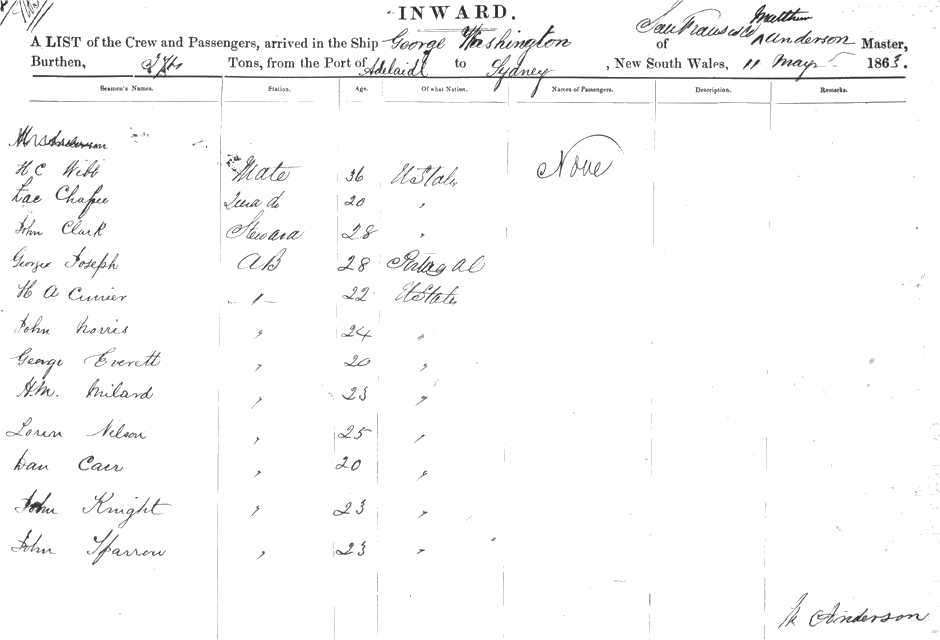 INWARD.
A LIST of the Crew and Passengers, arrived in the Ship George Washington of San Francisco Matthew Anderson Master,
Burthen, Tons, from the Port of Adelaide to Sydney, New South Wales, 11 May 1863.
Seamen's Names. Station. Age. Of what Nation. Names of Passengers. Description. Remarks.
H C Webb Mate 36 U States None
Chafee 2nd do 20 "
John Clark Steward 28 "
George Joseph AB 28 Portugal
H A Currier " 22 U States
John Norris " 24 "
George Everett " 20 "
H.M. Milard " 23 "
Loren Nelson " 25 "
Dan Carr " 20 "
John Knight " 23 "
John Sparrow " 23 "
M Anderson